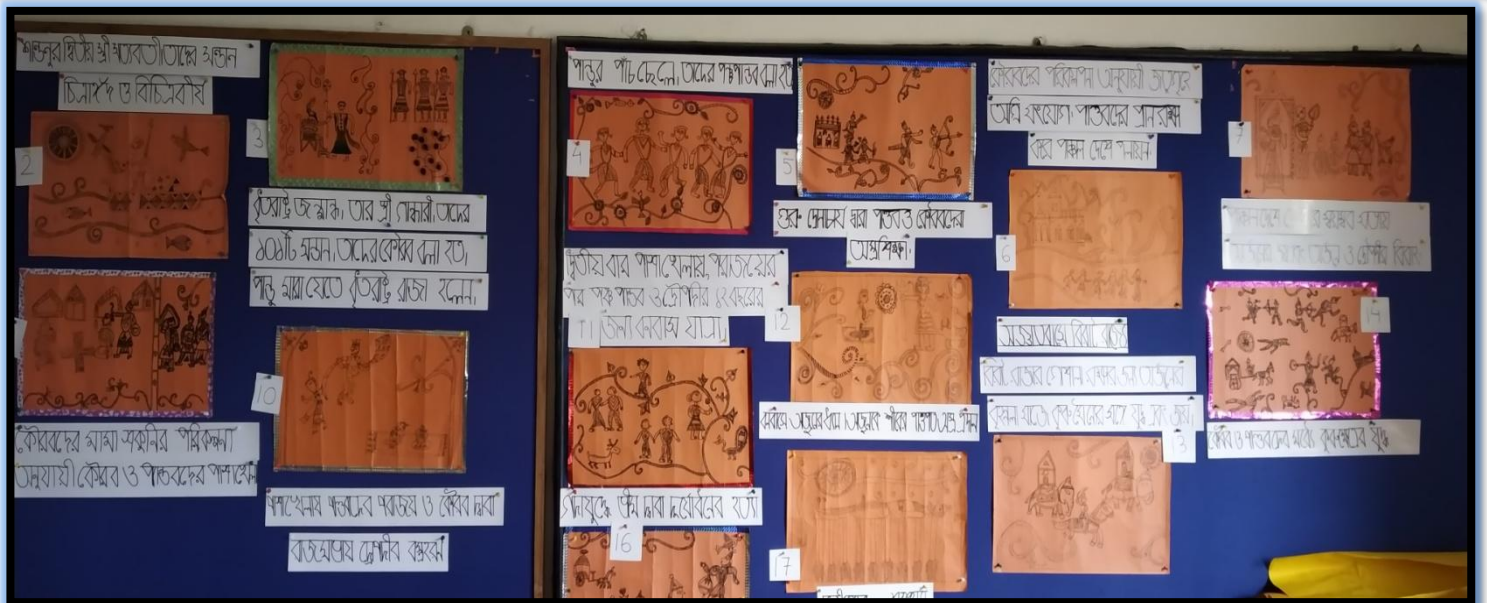 শান্তনুর দ্বিতীয় স্ত্রী সত্যবতী তাদের সন্তান
চিত্রাঙ্গদ ও বিচিত্রবীর্য
2
3
ধৃতরাষ্ট্র জন্মান্ধ, তার স্ত্রী গান্ধারী, তাদের
১০১টি সন্তান, তাদের কৌরব বলা হত,
পান্ডু মারা যেতে ধৃতরাষ্ট্র রাজা হলেন।
কৌরবদের মামা শকুনির পরিকল্পনা
অনুযায়ী কৌরব ও পান্ডবদের পাশাখেলা
10
পাশাখেলায় পান্ডবদের পরাজয় ও কৌরব দ্বারা
রাজসভায় দ্রৌপদীর বস্ত্রহরণ
পান্ডুর পাঁচ ছেলে, তাদের পঞ্চপান্ডব বলা হত
4
5
গুরু দ্রোনাচার্য দ্বারা পান্ডব ও কৌরবদের
অস্ত্রশিক্ষা।
দ্বিতীয় বার পাশাখেলায়, পরাজয়ের
পর পঞ্চ পান্ডব ও দ্রৌপদীর ১২ বছরের
জন্য বনবাস যাত্রা,
12
গদাযুদ্ধে ভীম দ্বারা দুর্যোধনের হত্যা
16
17
কৌরবদের পরিকল্পনা অনুযায়ী জতুগৃহে
অগ্নি সংযোগ। পান্ডবদের প্রান রক্ষা
করে পাঞ্চাল দেশে পলায়ন
6
7
পাঞ্চাল দেশে
অর্জুন ও দ্রৌপদীর বিবাহ
অজ্ঞাতবাসে বিরাট রাজ্যে
বিরাট রাজার গোশালা রক্ষার জন্য অর্জুনের
যুদ্ধ এবং জয়।
13
14
কৌরব ও পান্ডবদের মধ্যে কুরুক্ষেত্রের যুদ্ধ